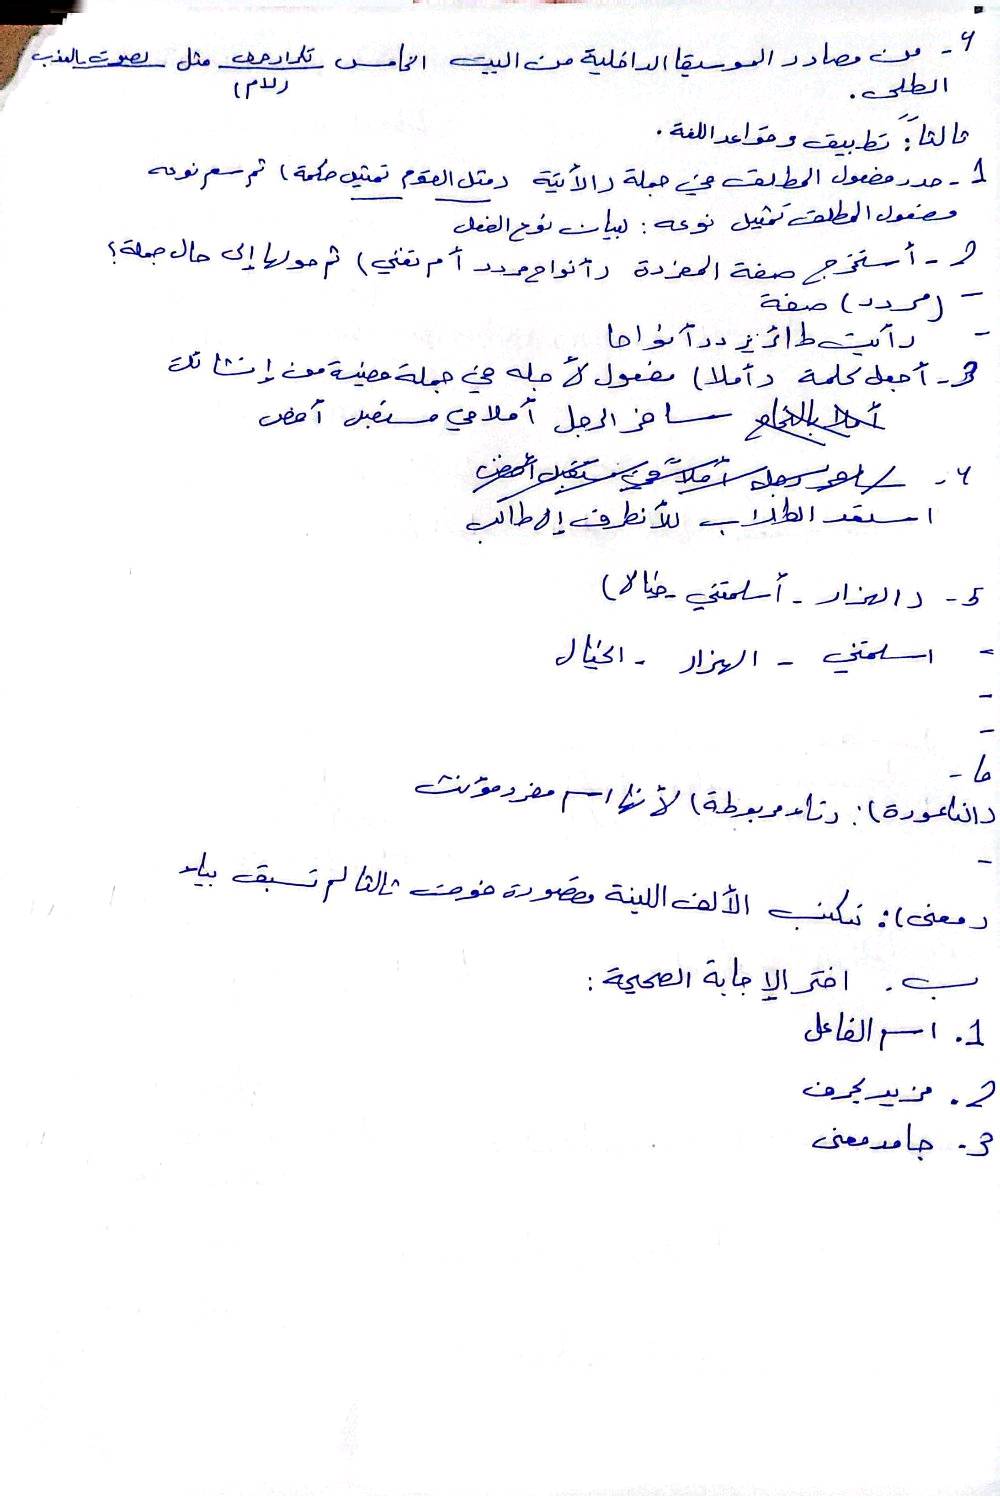 ٩- من مصادر الموسيقا الداخلية من البيت الخامس تكرار حرف مثل لصوت بالعذب
(لام)
الطلى.
ثالثاً: تطبيق وقواعد اللغة.
1- حدد مفعول المطلق في جملة الأتية (مثل القوم تمثيل حكمة) ثم سم نوعه
مفعول المطلق تمثيل نوعه: لبيان نوع الفعل
2- أستخرج صفة المفردة (أنواح مردد أم تغني) ثم حولها إلى حال جملة؟
- (مردد) صفة
- رأيت طائر يردد أنواحا
3- أجعل كلمة (أملا) مفعول لأجله في جملة مفيدة من إنشائك
سافر الرجل أملا في مستقبل أفضل
٤-
استعد الطلاب للأنطرف إلا طالب
5- (الهزار - أسلمتني - خيالا)
- اسلمتني - الهزار - الخيال
-
-
ها-
(الناعورة): (تاء مربوطة) لأنها اسم مفرد مؤنث
-
(معنى): تكتب الألف اللينة مقصورة فوقت ثالثا لم تسبق بياء
ب. اختر الإجابة الصحيحة:
1. اسم الفاعل
2. مزيد بحرف
3- جامد معنى